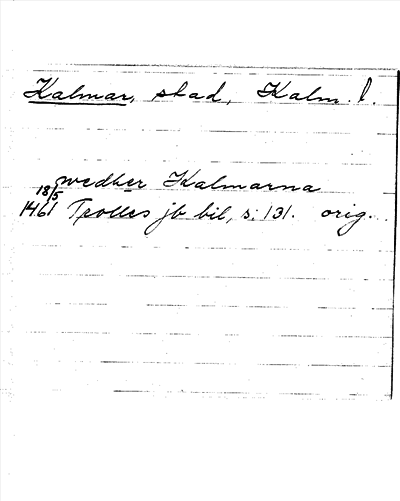 Kalmar, stad, Kalm. l.
wedher Kalmarna
18/5 1461 Trolles jb bil, s. 131. orig.